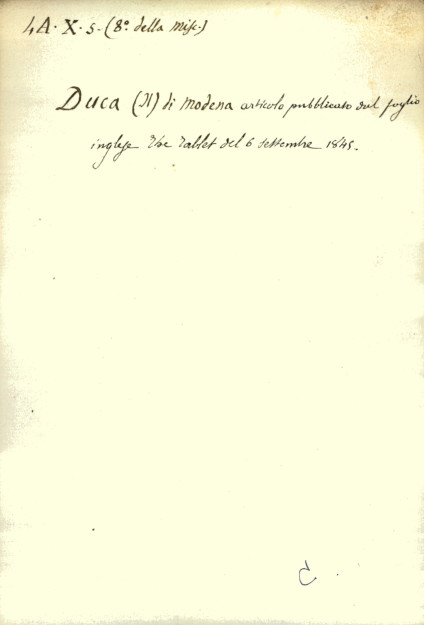 4A. X. 5. (8º della Misc.)
Duca (Il) di Modena articolo pubblicato dal foglio
inglese The Tablet del 6 settembre 1845.